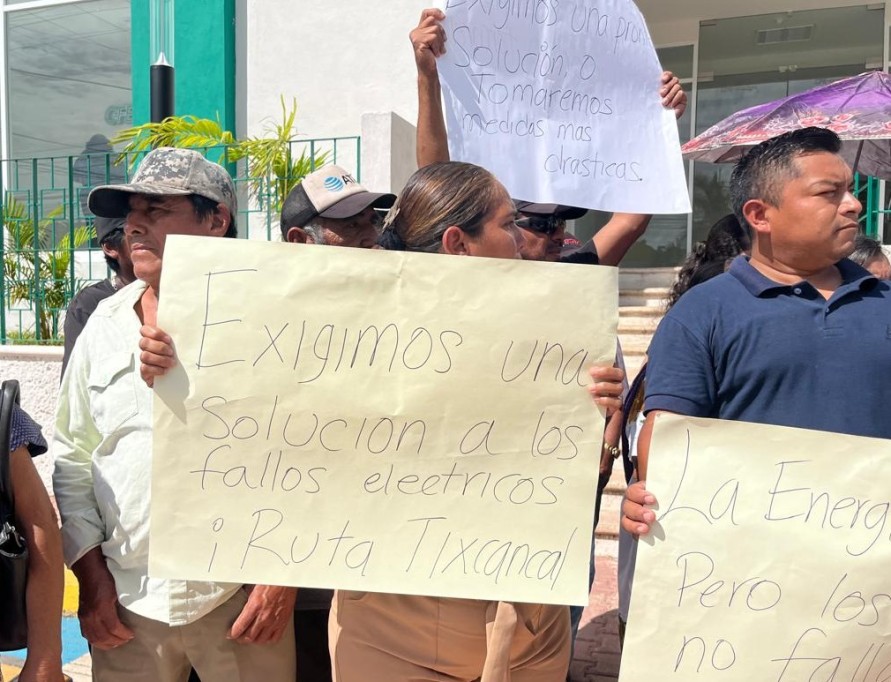 Exigimos una
Solución o
Tomaremos
medidas mas
drasticas.
AT&T
Exigimos una
Solucion a los
fallos electricos
¡Ruta Tixcancal
La Energ
Pero los
no falla